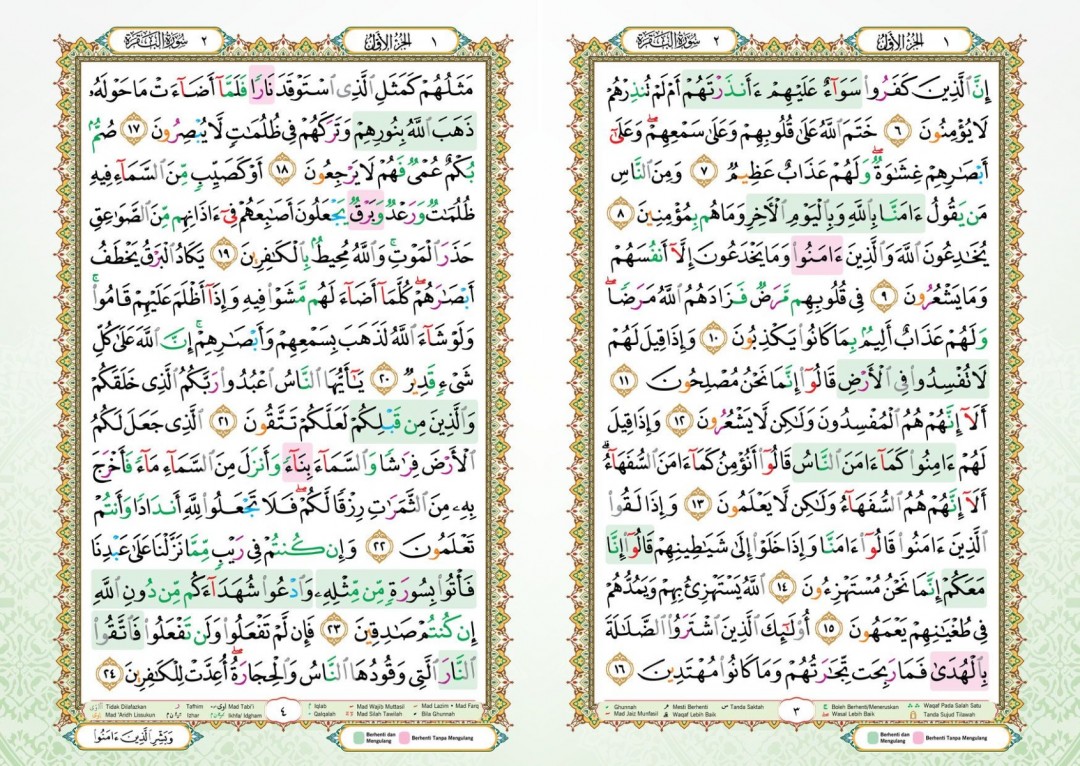 ١ الجزء الأول
٢ سورة البقرة
إِنَّ ٱلَّذِينَ كَفَرُوا۟ سَوَآءٌ عَلَيْهِمْ ءَأَنذَرْتَهُمْ أَمْ لَمْ تُنذِرْهُمْ
لَا يُؤْمِنُونَ ٦ خَتَمَ ٱللَّهُ عَلَىٰ قُلُوبِهِمْ وَعَلَىٰ سَمْعِهِمْ ۖ وَعَلَىٰٓ
أَبْصَـٰرِهِمْ غِشَـٰوَةٌ ۖ وَلَهُمْ عَذَابٌ عَظِيمٌ ٧ وَمِنَ ٱلنَّاسِ
مَن يَقُولُ ءَامَنَّا بِٱللَّهِ وَبِٱلْيَوْمِ ٱلْـَٔاخِرِ وَمَا هُم بِمُؤْمِنِينَ ٨
يُخَـٰدِعُونَ ٱللَّهَ وَٱلَّذِينَ ءَامَنُوا۟ وَمَا يَخْدَعُونَ إِلَّآ أَنفُسَهُمْ
وَمَا يَشْعُرُونَ ٩ فِى قُلُوبِهِم مَّرَضٌ فَزَادَهُمُ ٱللَّهُ مَرَضًا ۖ
وَلَهُمْ عَذَابٌ أَلِيمٌۢ بِمَا كَانُوا۟ يَكْذِبُونَ ١٠ وَإِذَا قِيلَ لَهُمْ
لَا تُفْسِدُوا۟ فِى ٱلْأَرْضِ قَالُوٓا۟ إِنَّمَا نَحْنُ مُصْلِحُونَ ١١
أَلَآ إِنَّهُمْ هُمُ ٱلْمُفْسِدُونَ وَلَـٰكِن لَّا يَشْعُرُونَ ١٢ وَإِذَا قِيلَ
لَهُمْ ءَامِنُوا۟ كَمَآ ءَامَنَ ٱلنَّاسُ قَالُوٓا۟ أَنُؤْمِنُ كَمَآ ءَامَنَ ٱلسُّفَهَآءُ ۗ
أَلَآ إِنَّهُمْ هُمُ ٱلسُّفَهَآءُ وَلَـٰكِن لَّا يَعْلَمُونَ ١٣ وَإِذَا لَقُوا۟
ٱلَّذِينَ ءَامَنُوا۟ قَالُوٓا۟ ءَامَنَّا وَإِذَا خَلَوْا۟ إِلَىٰ شَيَـٰطِينِهِمْ قَالُوٓا۟ إِنَّا
مَعَكُمْ إِنَّمَا نَحْنُ مُسْتَهْزِءُونَ ١٤ ٱللَّهُ يَسْتَهْزِئُ بِهِمْ وَيَمُدُّهُمْ
فِى طُغْيَـٰنِهِمْ يَعْمَهُونَ ١٥ أُو۟لَـٰٓئِكَ ٱلَّذِينَ ٱشْتَرَوُا۟ ٱلضَّلَـٰلَةَ
بِٱلْهُدَىٰ فَمَا رَبِحَت تِّجَـٰرَتُهُمْ وَمَا كَانُوا۟ مُهْتَدِينَ ١٦
Ghunnah
Mad Jaiz Munfasil
Mesti Berhenti
Waqaf Lebih Baik
Tanda Saktah
٣
Boleh Berhenti/Meneruskan
Wasal Lebih Baik
Waqaf Pada Salah Satu
Tanda Sujud Tilawah
Berhenti dan Mengulang
Berhenti Tanpa Mengulang
١ الجزء الأول
٢ سورة البقرة
مَثَلُهُمْ كَمَثَلِ ٱلَّذِى ٱسْتَوْقَدَ نَارًا فَلَمَّآ أَضَآءَتْ مَا حَوْلَهُۥ
ذَهَبَ ٱللَّهُ بِنُورِهِمْ وَتَرَكَهُمْ فِى ظُلُمَـٰتٍ لَّا يُبْصِرُونَ ١٧ صُمٌّۢ
بُكْمٌ عُمْىٌ فَهُمْ لَا يَرْجِعُونَ ١٨ أَوْ كَصَيِّبٍ مِّنَ ٱلسَّمَآءِ فِيهِ
ظُلُمَـٰتٌ وَرَعْدٌ وَبَرْقٌ يَجْعَلُونَ أَصَـٰبِعَهُمْ فِىٓ ءَاذَانِهِم مِّنَ ٱلصَّوَٰعِقِ
حَذَرَ ٱلْمَوْتِ ۚ وَٱللَّهُ مُحِيطٌۢ بِٱلْكَـٰفِرِينَ ١٩ يَكَادُ ٱلْبَرْقُ يَخْطَفُ
أَبْصَـٰرَهُمْ ۖ كُلَّمَآ أَضَآءَ لَهُم مَّشَوْا۟ فِيهِ وَإِذَآ أَظْلَمَ عَلَيْهِمْ قَامُوا۟ ۚ
وَلَوْ شَآءَ ٱللَّهُ لَذَهَبَ بِسَمْعِهِمْ وَأَبْصَـٰرِهِمْ ۚ إِنَّ ٱللَّهَ عَلَىٰ كُلِّ
شَىْءٍ قَدِيرٌ ٢٠ يَـٰٓأَيُّهَا ٱلنَّاسُ ٱعْبُدُوا۟ رَبَّكُمُ ٱلَّذِى خَلَقَكُمْ
وَٱلَّذِينَ مِن قَبْلِكُمْ لَعَلَّكُمْ تَتَّقُونَ ٢١ ٱلَّذِى جَعَلَ لَكُمُ
ٱلْأَرْضَ فِرَٰشًا وَٱلسَّمَآءَ بِنَآءً وَأَنزَلَ مِنَ ٱلسَّمَآءِ مَآءً فَأَخْرَجَ
بِهِۦ مِنَ ٱلثَّمَرَٰتِ رِزْقًا لَّكُمْ ۖ فَلَا تَجْعَلُوا۟ لِلَّهِ أَندَادًا وَأَنتُمْ
تَعْلَمُونَ ٢٢ وَإِن كُنتُمْ فِى رَيْبٍ مِّمَّا نَزَّلْنَا عَلَىٰ عَبْدِنَا
فَأْتُوا۟ بِسُورَةٍ مِّن مِّثْلِهِۦ وَٱدْعُوا۟ شُهَدَآءَكُم مِّن دُونِ ٱللَّهِ
إِن كُنتُمْ صَـٰدِقِينَ ٢٣ فَإِن لَّمْ تَفْعَلُوا۟ وَلَن تَفْعَلُوا۟ فَٱتَّقُوا۟
ٱلنَّارَ ٱلَّتِى وَقُودُهَا ٱلنَّاسُ وَٱلْحِجَارَةُ ۖ أُعِدَّتْ لِلْكَـٰفِرِينَ ٢٤
Tidak Dilafazkan
Mad 'Aridh Lissukun
Tafhim
Izhar
Mad Tabi'i
Ikhfa/ Idgham
٤
Iqlab
Qalqalah
Mad Wajib Muttasil
Mad Silah Tawilah
Mad Lazim • Mad Farq
Bila Ghunnah
وَبَشِّرِ ٱلَّذِينَ ءَامَنُوا۟
Berhenti dan Mengulang
Berhenti Tanpa Mengulang